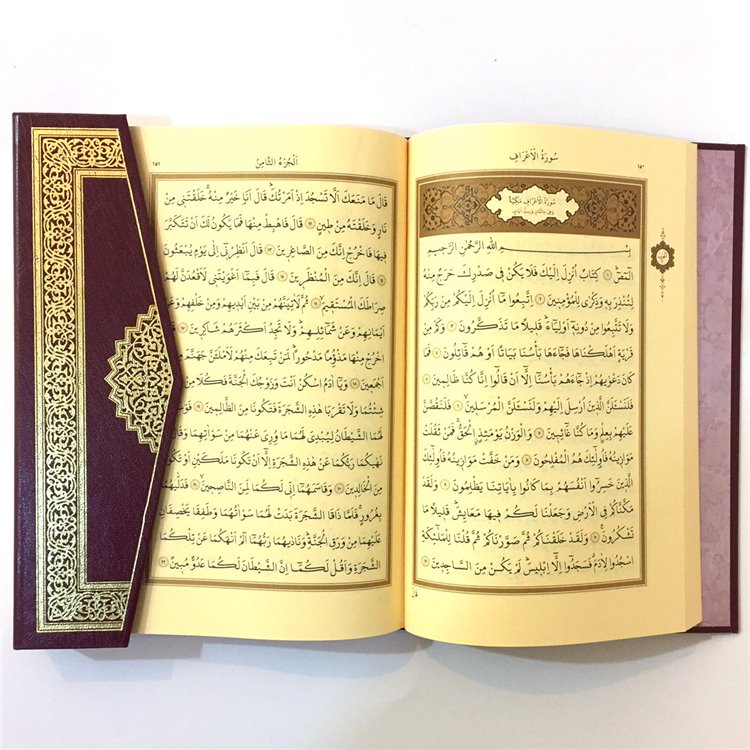 سُورَةُ الْاَعْرَافِ
١٥٠
سُورَةُ الْاَعْرَافِ مَكِّيَّةٌ
بِسْــــمِ اللّٰهِ الرَّحْمٰنِ الرَّحٖيمِ
الٓمٓصٓ ﴿١﴾ كِتَابٌ اُنْزِلَ اِلَيْكَ فَلَا يَكُنْ فٖى صَدْرِكَ حَرَجٌ مِنْهُ
لِتُنْذِرَ بِهٖ وَذِكْرٰى لِلْمُؤْمِنٖينَ ﴿٢﴾ اِتَّبِعُوا مَٓا اُنْزِلَ اِلَيْكُمْ مِنْ رَبِّكُمْ
وَلَا تَتَّبِعُوا مِنْ دُونِهٖٓ اَوْلِيَٓاءَ قَلٖيلًا مَا تَذَكَّرُونَ ﴿٣﴾ وَكَمْ مِنْ
قَرْيَةٍ اَهْلَكْنَاهَا فَجَٓاءَهَا بَأْسُنَا بَيَاتًا اَوْ هُمْ قَٓائِلُونَ ﴿٤﴾ فَمَا
كَانَ دَعْوٰيهُمْ اِذْ جَٓاءَهُمْ بَأْسُنَٓا اِلَّٓا اَنْ قَالُٓوا اِنَّا كُنَّا ظَالِمٖينَ ﴿٥﴾
فَلَنَسْـَٔلَنَّ الَّذٖينَ اُرْسِلَ اِلَيْهِمْ وَلَنَسْـَٔلَنَّ الْمُرْسَلٖينَ ﴿٦﴾ فَلَنَقُصَّنَّ
عَلَيْهِمْ بِعِلْمٍ وَمَا كُنَّا غَٓائِبٖينَ ﴿٧﴾ وَالْوَزْنُ يَوْمَئِذٍ الْحَقُّ فَمَنْ ثَقُلَتْ
مَوَازٖينُهُ فَاُولٰٓئِكَ هُمُ الْمُفْلِحُونَ ﴿٨﴾ وَمَنْ خَفَّتْ مَوَازٖينُهُ فَاُولٰٓئِكَ
الَّذٖينَ خَسِرُٓوا اَنْفُسَهُمْ بِمَا كَانُوا بِاٰيَاتِنَا يَظْلِمُونَ ﴿٩﴾ وَلَقَدْ
مَكَّنَّاكُمْ فِى الْاَرْضِ وَجَعَلْنَا لَكُمْ فٖيهَا مَعَايِشَ قَلٖيلًا مَا
تَشْكُرُونَ ﴿١٠﴾ وَلَقَدْ خَلَقْنَاكُمْ ثُمَّ صَوَّرْنَاكُمْ ثُمَّ قُلْنَا لِلْمَلٰٓئِكَةِ
اسْجُدُوا لِاٰدَمَ فَسَجَدُٓوا اِلَّٓا اِبْلٖيسَ لَمْ يَكُنْ مِنَ السَّاجِدٖينَ ﴿١١﴾
قَالَ
اَلْجُزْءُ الثَّامِنُ
١٥١
قَالَ مَا مَنَعَكَ اَلَّا تَسْجُدَ اِذْ اَمَرْتُكَ قَالَ اَنَا۬ خَيْرٌ مِنْهُ خَلَقْتَنٖى مِنْ
نَارٍ وَخَلَقْتَهُ مِنْ طٖينٍ ﴿١٢﴾ قَالَ فَاهْبِطْ مِنْهَا فَمَا يَكُونُ لَكَ اَنْ تَتَكَبَّرَ
فٖيهَا فَاخْرُجْ اِنَّكَ مِنَ الصَّاغِرٖينَ ﴿١٣﴾ قَالَ اَنْظِرْنٖٓى اِلٰى يَوْمِ يُبْعَثُونَ
﴿١٤﴾ قَالَ اِنَّكَ مِنَ الْمُنْظَرٖينَ ﴿١٥﴾ قَالَ فَبِمَٓا اَغْوَيْتَنٖى لَاَقْعُدَنَّ لَهُمْ
صِرَاطَكَ الْمُسْتَقٖيمَ ﴿١٦﴾ ثُمَّ لَاٰتِيَنَّهُمْ مِنْ بَيْنِ اَيْدٖيهِمْ وَمِنْ خَلْفِهِمْ وَعَنْ
اَيْمَانِهِمْ وَعَنْ شَمَٓائِلِهِمْ وَلَا تَجِدُ اَكْثَرَهُمْ شَاكِرٖينَ ﴿١٧﴾ قَالَ
اخْرُجْ مِنْهَا مَذْؤُ۫مًا مَدْحُورًا لَمَنْ تَبِعَكَ مِنْهُمْ لَاَمْلَـَٔنَّ جَهَنَّمَ مِنْكُمْ
اَجْمَعٖينَ ﴿١٨﴾ وَيَٓا اٰدَمُ اسْكُنْ اَنْتَ وَزَوْجُكَ الْجَنَّةَ فَكُلَا مِنْ حَيْثُ
شِئْتُمَا وَلَا تَقْرَبَا هٰذِهِ الشَّجَرَةَ فَتَكُونَا مِنَ الظَّالِمٖينَ ﴿١٩﴾ فَوَسْوَسَ
لَهُمَا الشَّيْطَانُ لِيُبْدِىَ لَهُمَا مَا وُ۫رِىَ عَنْهُمَا مِنْ سَوْاٰتِهِمَا وَقَالَ مَا
نَهٰيكُمَا رَبُّكُمَا عَنْ هٰذِهِ الشَّجَرَةِ اِلَّٓا اَنْ تَكُونَا مَلَكَيْنِ اَوْ تَكُونَا
مِنَ الْخَالِدٖينَ ﴿٢٠﴾ وَقَاسَمَهُمَٓا اِنّٖى لَكُمَا لَمِنَ النَّاصِحٖينَ ﴿٢١﴾ فَدَلّٰيهُمَا
بِغُرُورٍ فَلَمَّا ذَاقَا الشَّجَرَةَ بَدَتْ لَهُمَا سَوْاٰتُهُمَا وَطَفِقَا يَخْصِفَانِ
عَلَيْهِمَا مِنْ وَرَقِ الْجَنَّةِ وَنَادٰيهُمَا رَبُّهُمَٓا اَلَمْ اَنْهَكُمَا عَنْ تِلْكُمَا
الشَّجَرَةِ وَاَقُلْ لَكُمَٓا اِنَّ الشَّيْطَانَ لَكُمَا عَدُوٌّ مُبٖينٌ ﴿٢٢﴾